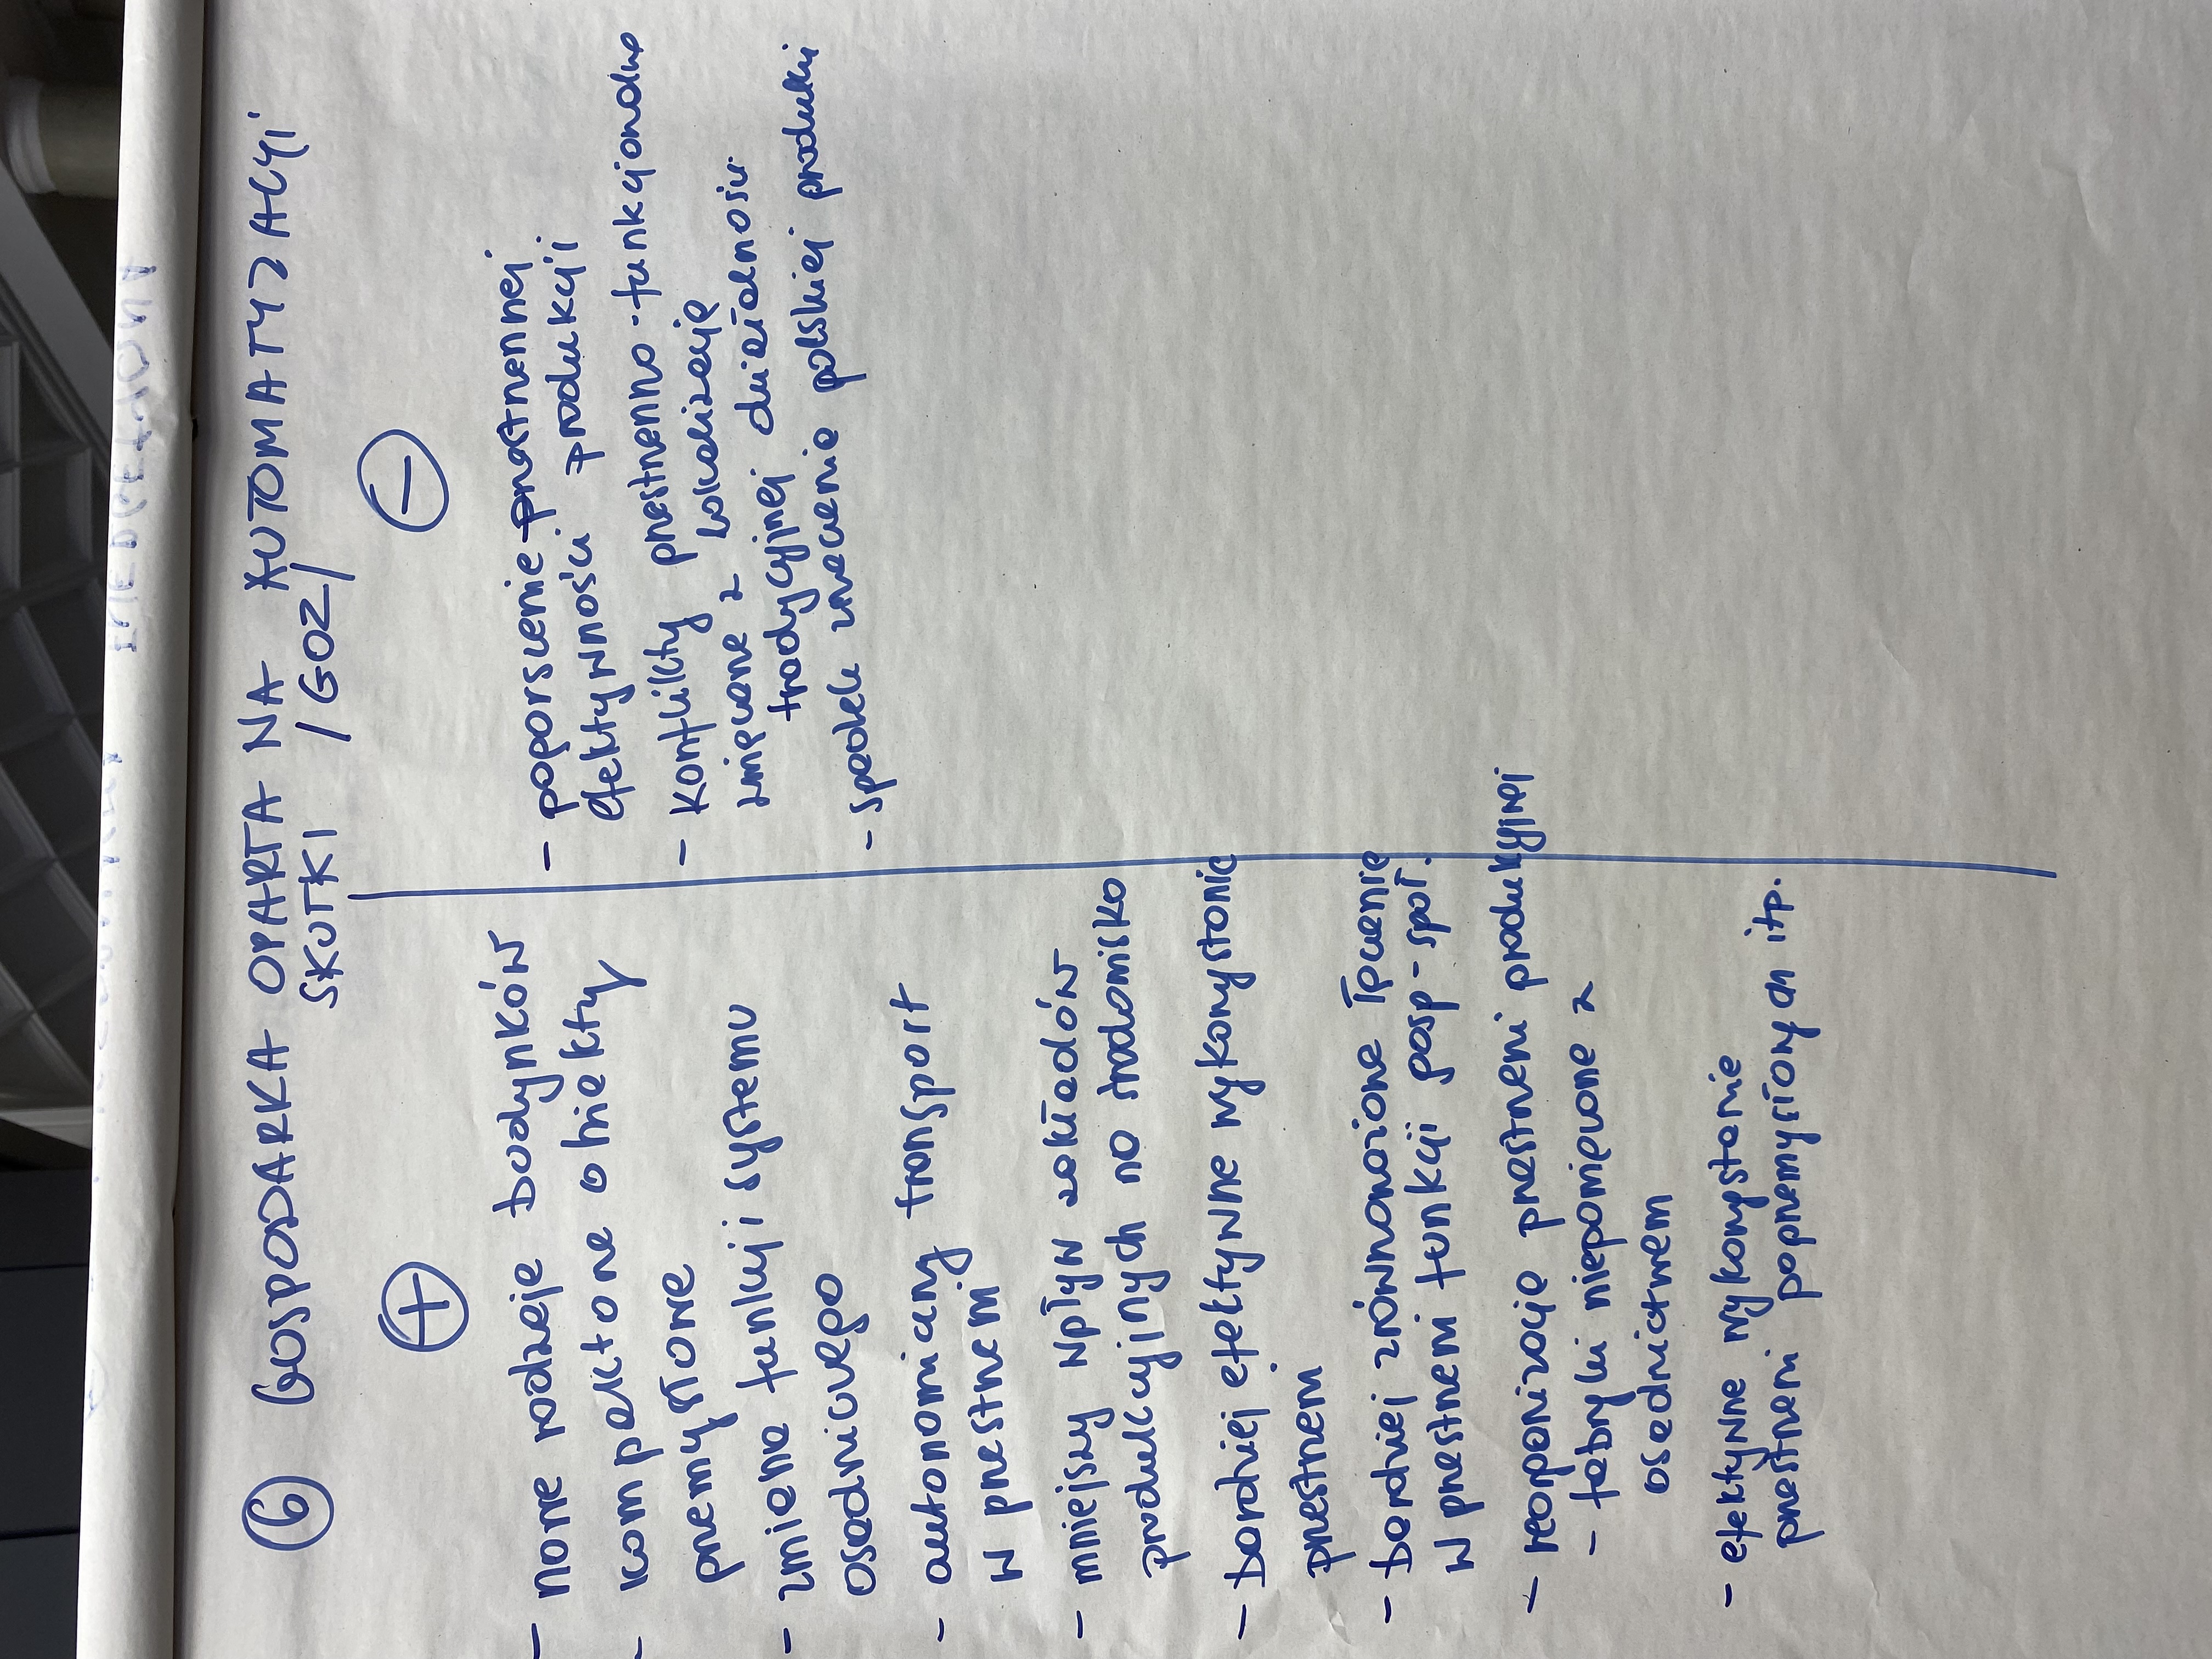 6 GOSPODARKA OPARTA NA AUTOMATYZACJI
SKUTKI /GOZ/
+
- nowe rodzaje budynków
- kompaktowe obiekty
przemysłowe
- zmiana funkcji systemu
osadniczego
- autonomiczny transport
w przestrzeni
- mniejszy wpływ zakładów
produkcyjnych na środowisko
- bardziej efektywne wykorzystanie
przestrzeni
- bardziej zrównoważone łączenie
w przestrzeni funkcji gosp-społ.
- reorganizacja przestrzeni produkcyjnej
- fabryki niepowiązane z
osadnictwem
- efektywne wykorzystanie
przestrzeni poprzemysłowych itp.
-
- pogorszenie przestrzennej
efektywności produkcji
- konflikty przestrzenno-funkcjonalne
związane z lokalizacją
tradycyjnej działalności
- spadek znaczenie polskiej produkcji